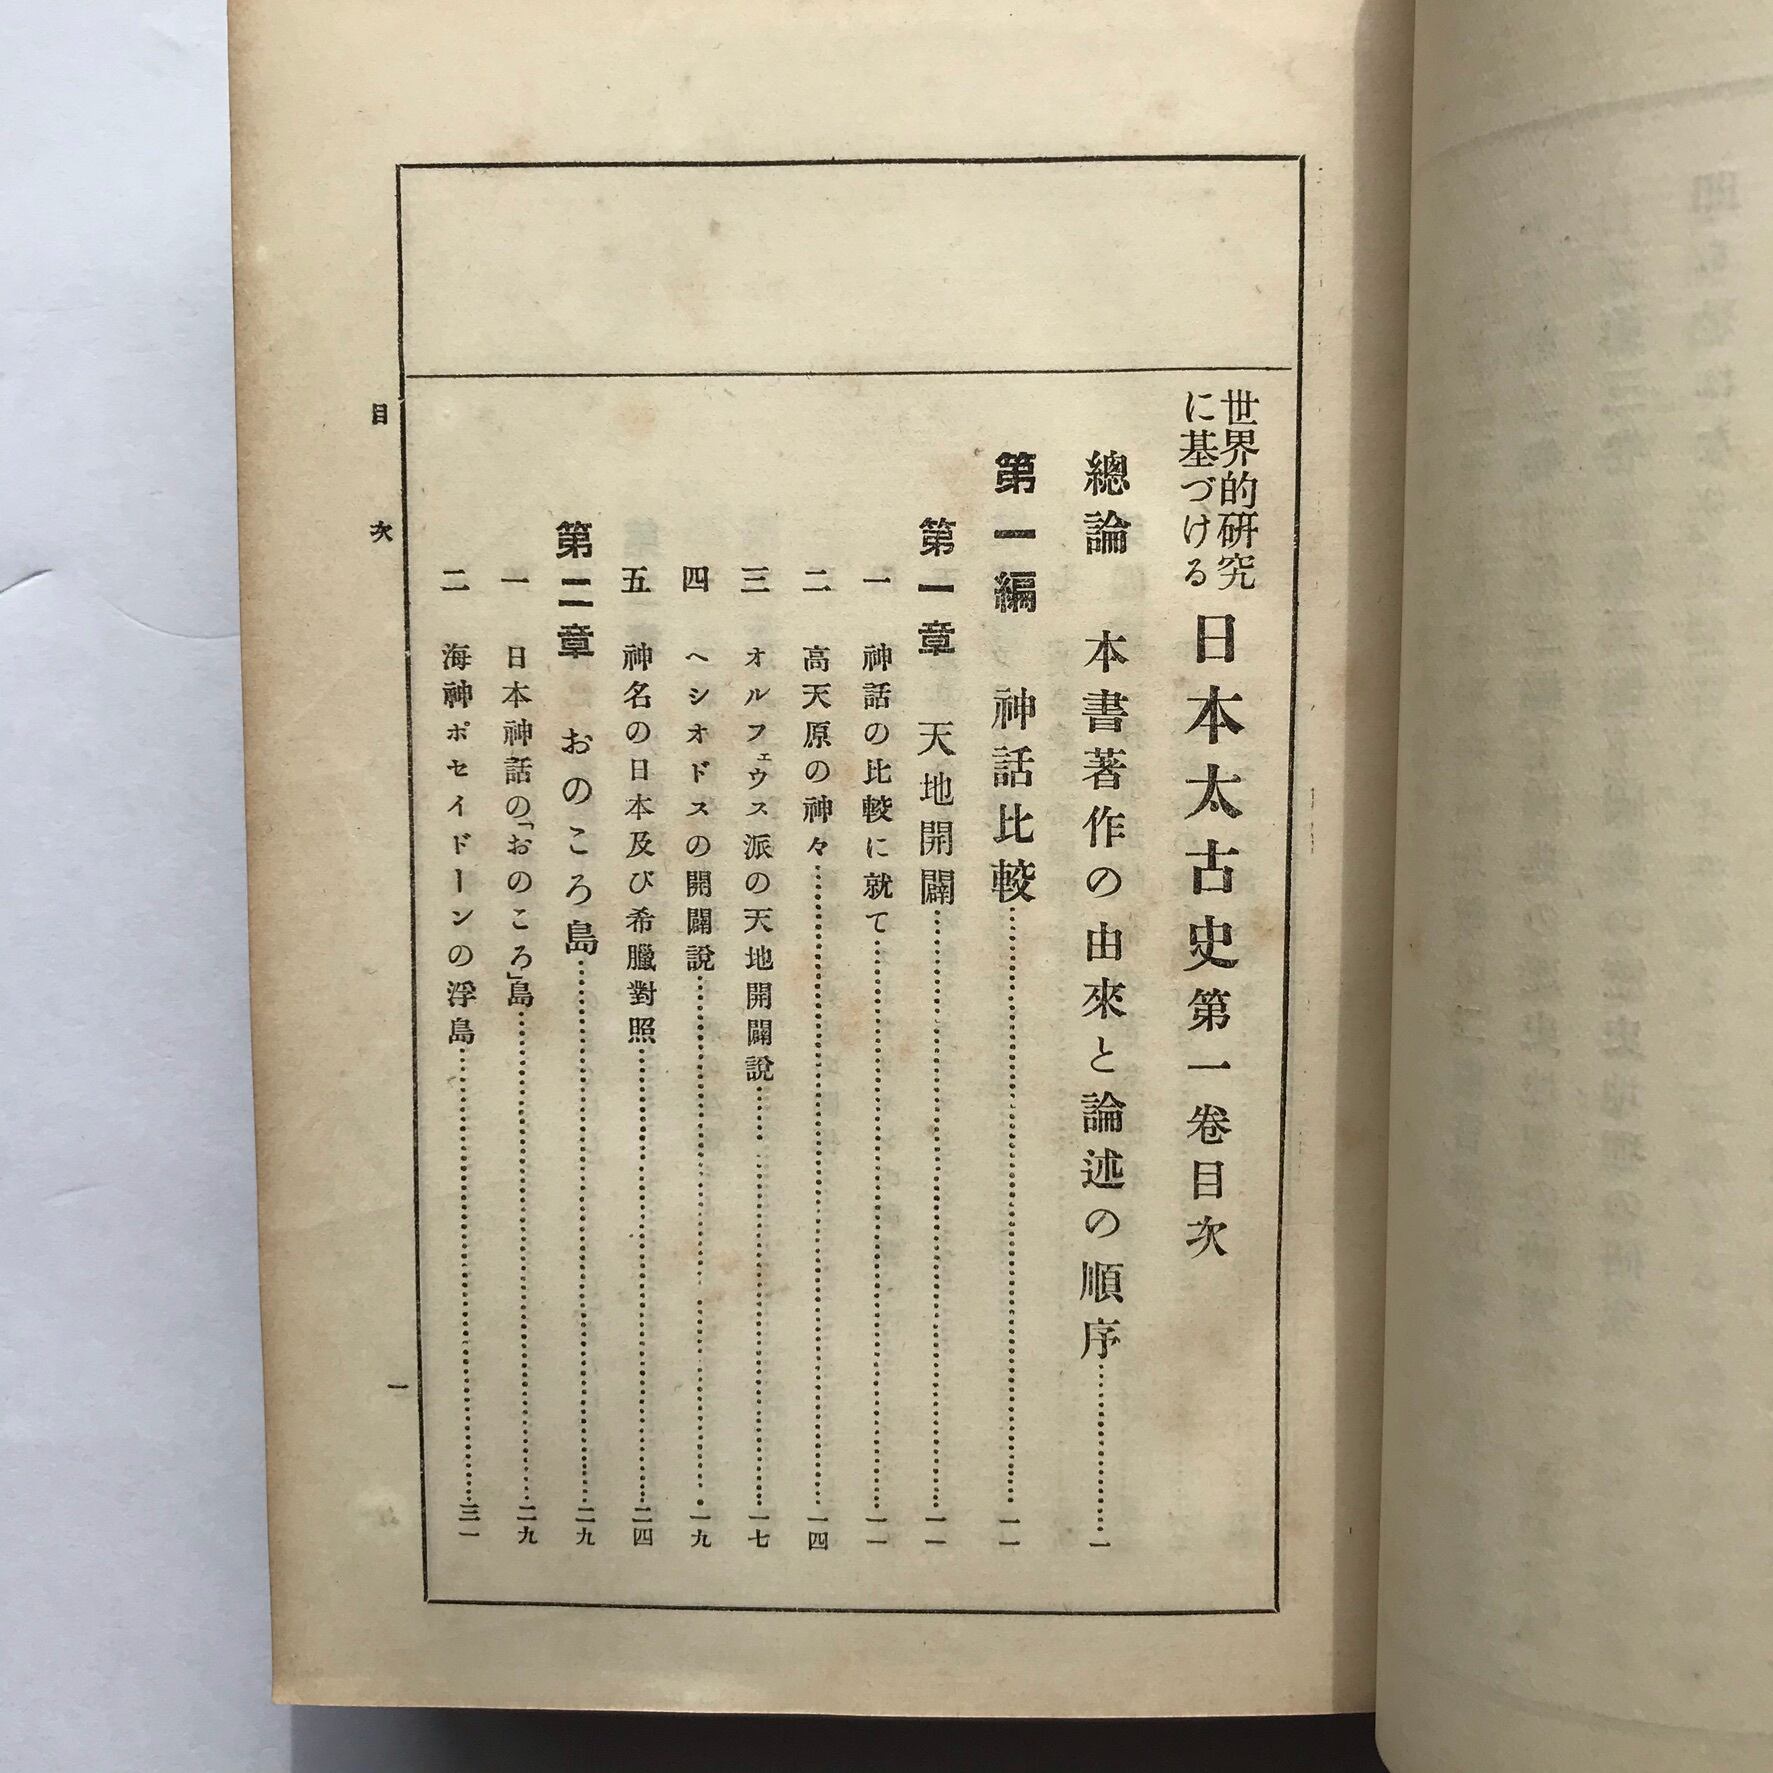 世界的研究
に基づける
日本太古史第一卷目次
總論 本書著作の由來と論述の順序……一
第一編 神話比較……一一
第一章 天地開闢……一一
一 神話の比較に就て……一一
二 高天原の神々……一四
三 オルフェウス派の天地開闢說……一七
四 ヘシオドスの開闢說……一九
五 神名の日本及び希臘對照……二四
第二章 おのころ島……二九
一 日本神話の「おのころ」島……二九
二 海神ポセイドーンの浮島……三一
目次
一